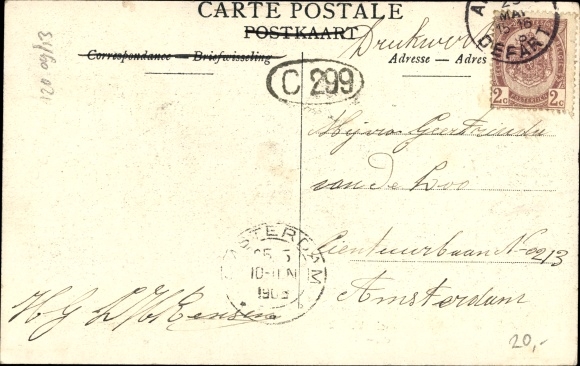 CARTE POSTALE
POSTKAART
Correspondance — Briefwisseling
Drukwerk
Adresse — Adres
DEPART
2c 2c
C 299
Mejvro Geertruida
van de Loo
Ceintuurbaan No 213
Amsterdam
AMSTERDAM
10-11 N
H G
20,-